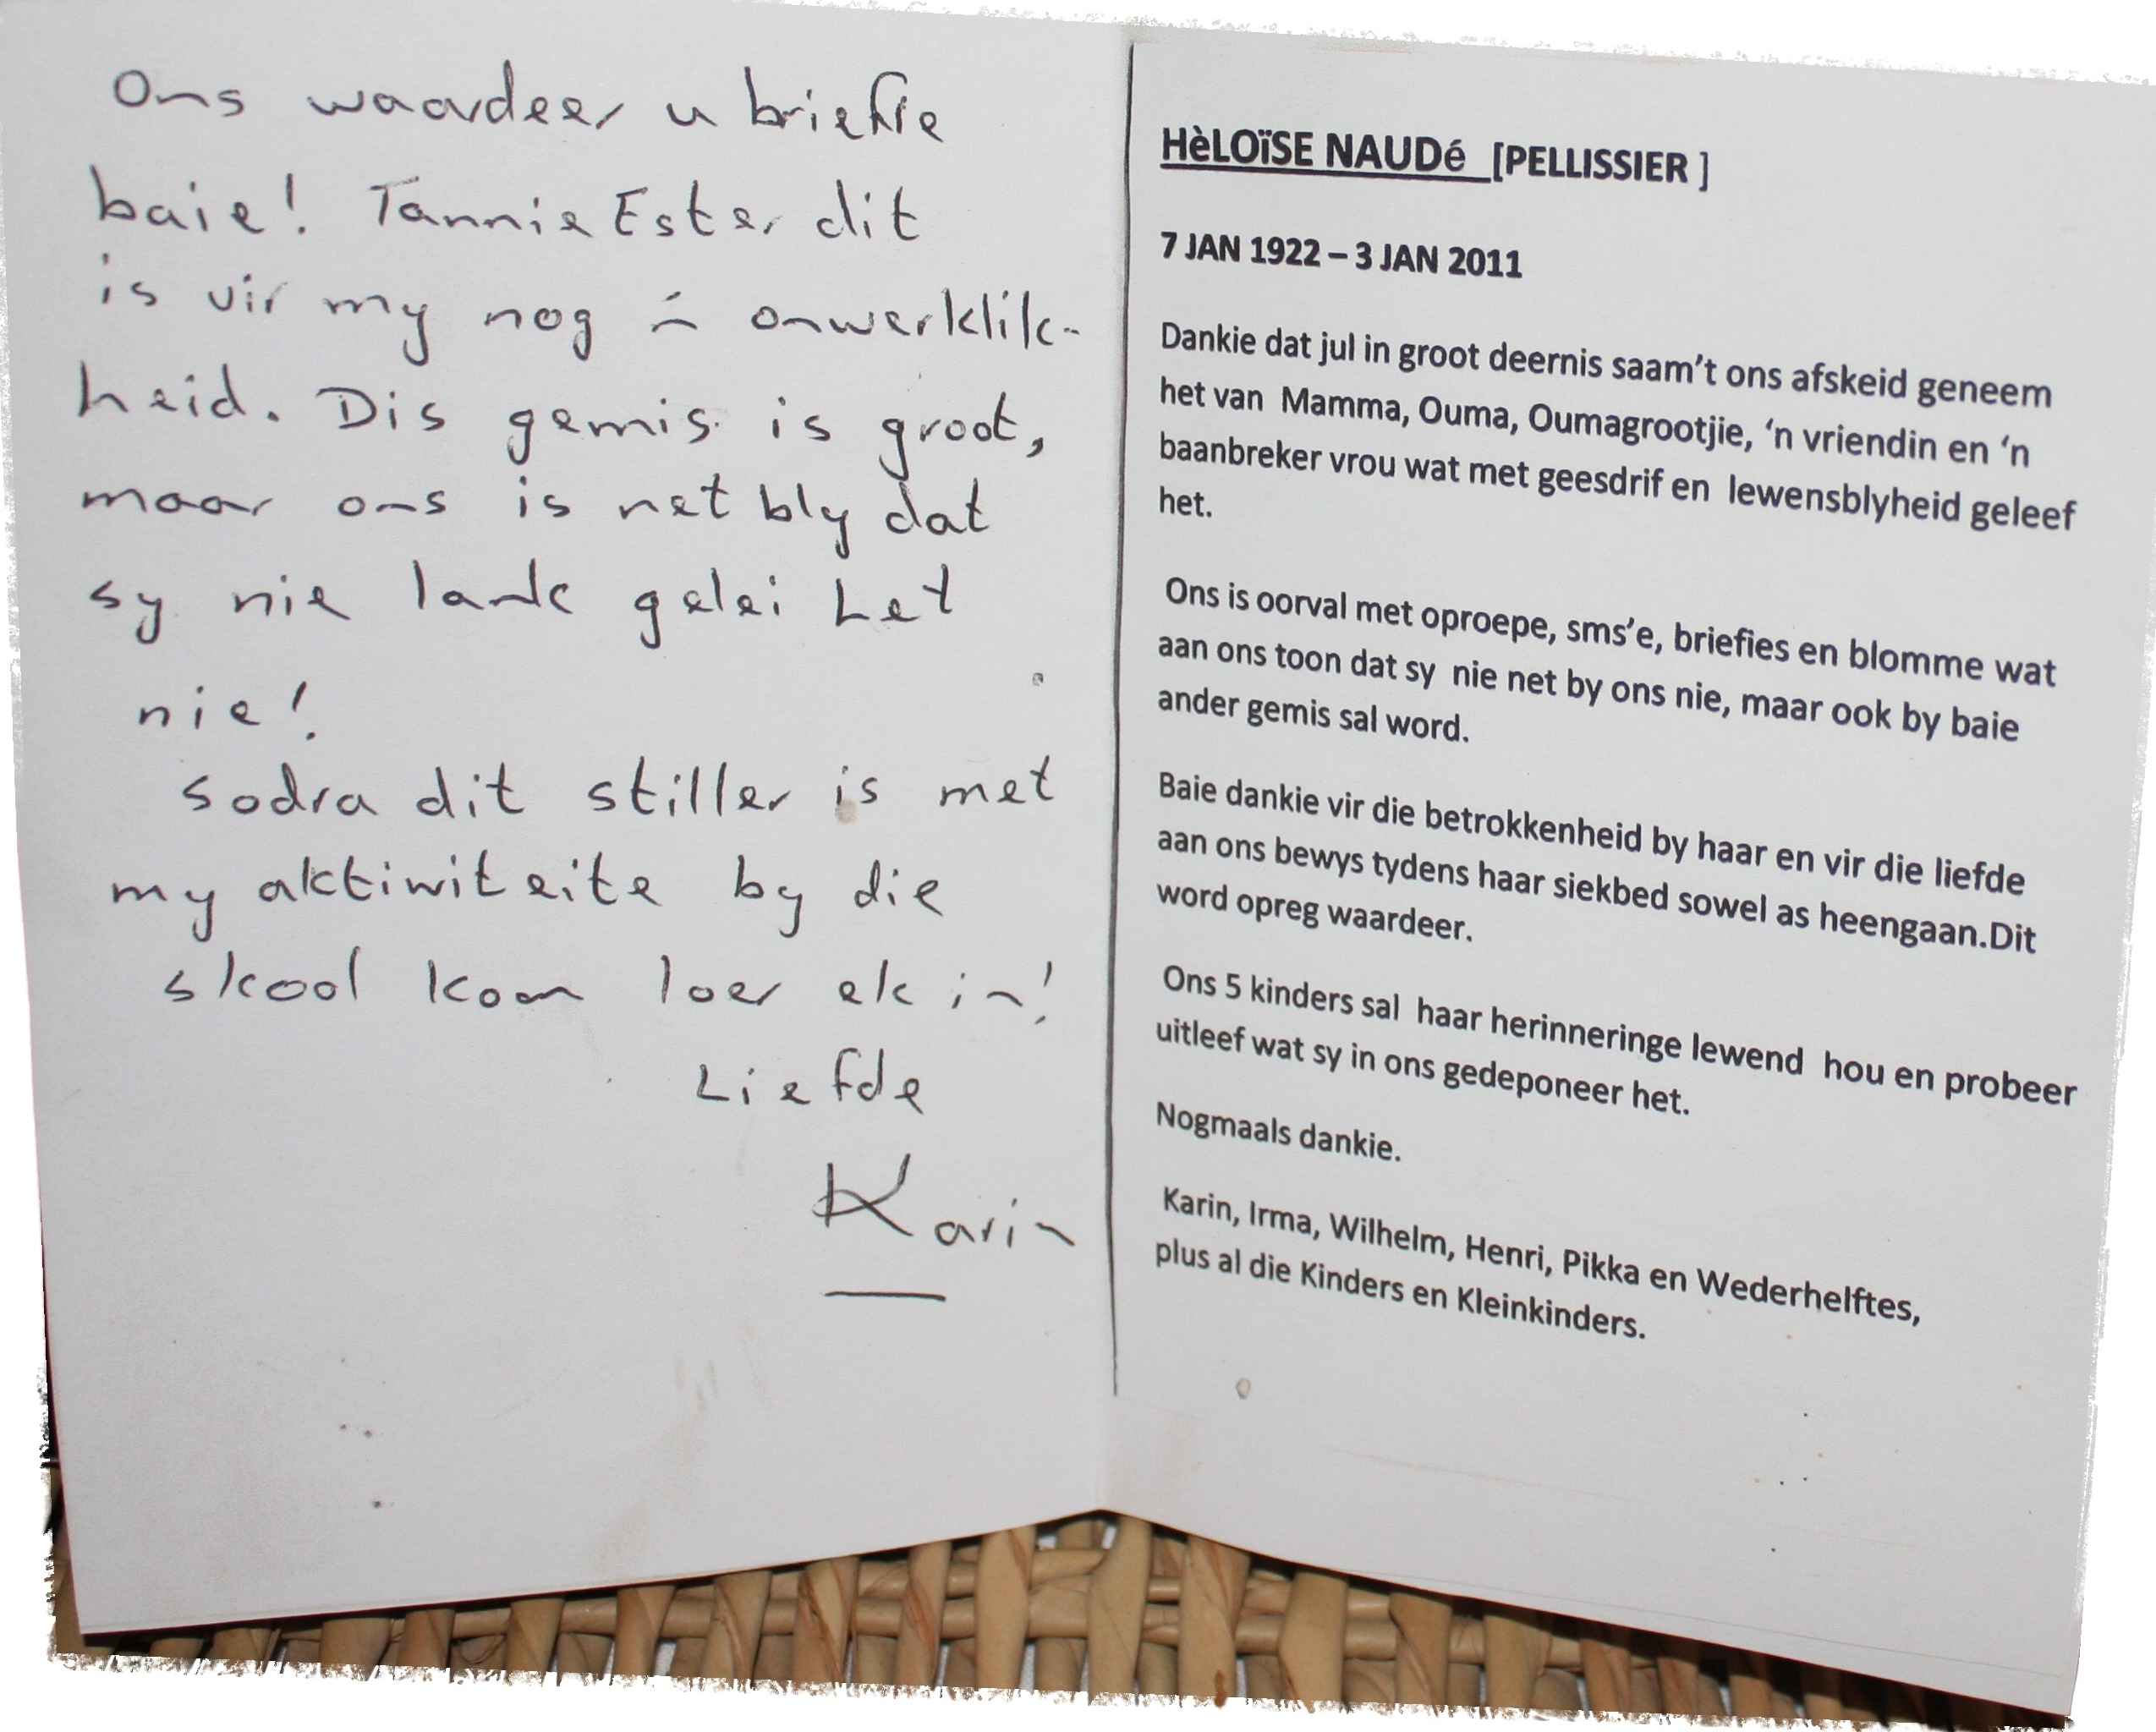 Ons waardeer u briefie
baie! Tannie Ester dit
is vir my nog 'n onwerklik-
heid. Dis gemis is groot,
maar ons is net bly dat
sy nie lank gelei het
nie!
sodra dit stiller is met
my aktiwiteite by die
skool kom loer ek in!
Liefde
Karin
HèLOïSE NAUDé [PELLISSIER ]
7 JAN 1922 – 3 JAN 2011
Dankie dat jul in groot deernis saam't ons afskeid geneem
het van Mamma, Ouma, Oumagrootjie, 'n vriendin en 'n
baanbreker vrou wat met geesdrif en lewensblyheid geleef
het.
Ons is oorval met oproepe, sms'e, briefies en blomme wat
aan ons toon dat sy nie net by ons nie, maar ook by baie
ander gemis sal word.
Baie dankie vir die betrokkenheid by haar en vir die liefde
aan ons bewys tydens haar siekbed sowel as heengaan.Dit
word opreg waardeer.
Ons 5 kinders sal haar herinneringe lewend hou en probeer
uitleef wat sy in ons gedeponeer het.
Nogmaals dankie.
Karin, Irma, Wilhelm, Henri, Pikka en Wederhelftes,
plus al die Kinders en Kleinkinders.